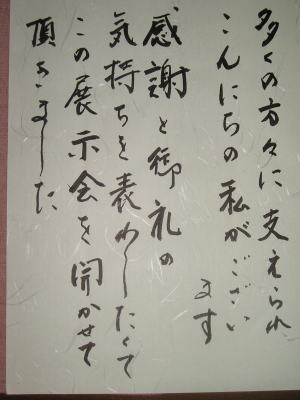 多くの方々に支えられ
こんにちの私がござい
ます
感謝と御礼の
気持ちを表わしたくて
この展示会を開かせて
頂きました